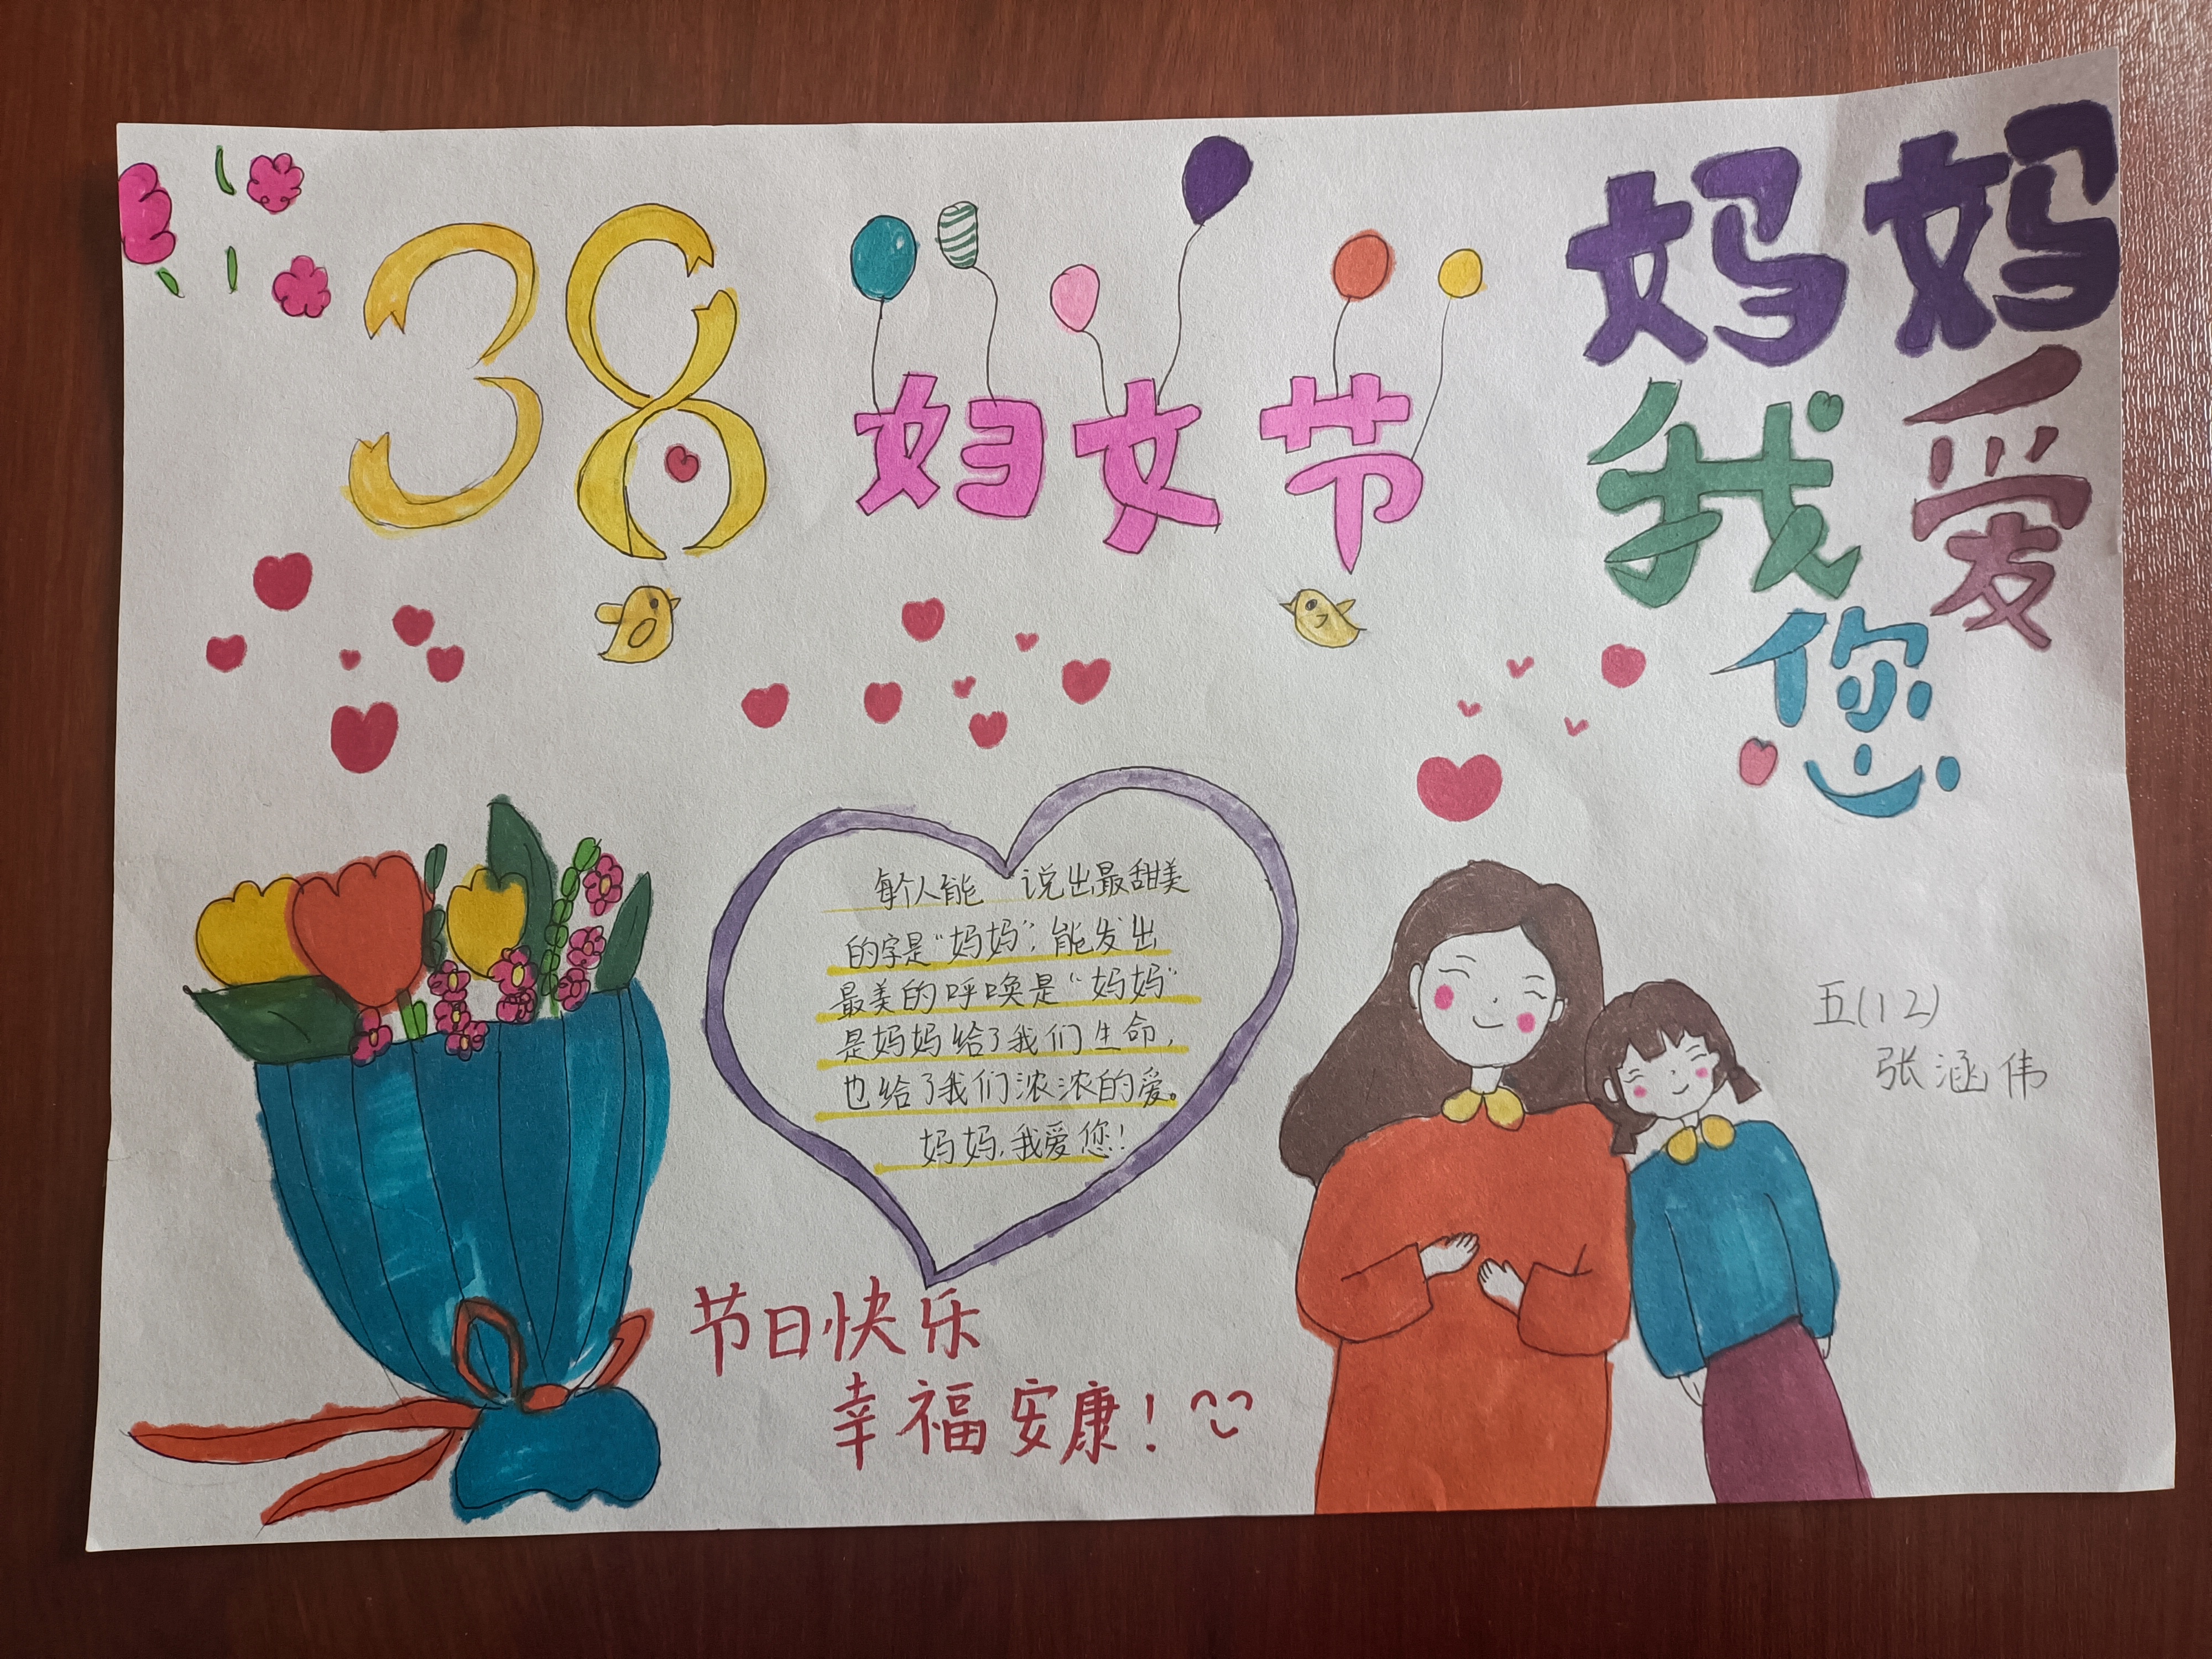 38
妇女节
妈妈
我爱
您
每个人能 说出最甜美
的字是“妈妈”,能发出
最美的呼唤是“妈妈”
是妈妈给了我们生命,
也给了我们浓浓的爱。
妈妈,我爱您!
节日快乐
幸福安康!
五(12)
张涵伟